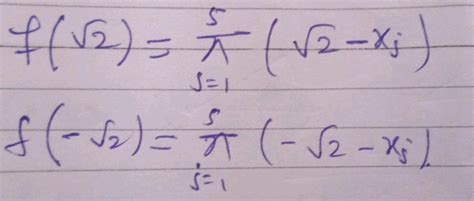 f(√2) = ∏_{j=1}^{5} (√2 - x_j)
f(-√2) = ∏_{j=1}^{5} (-√2 - x_j)